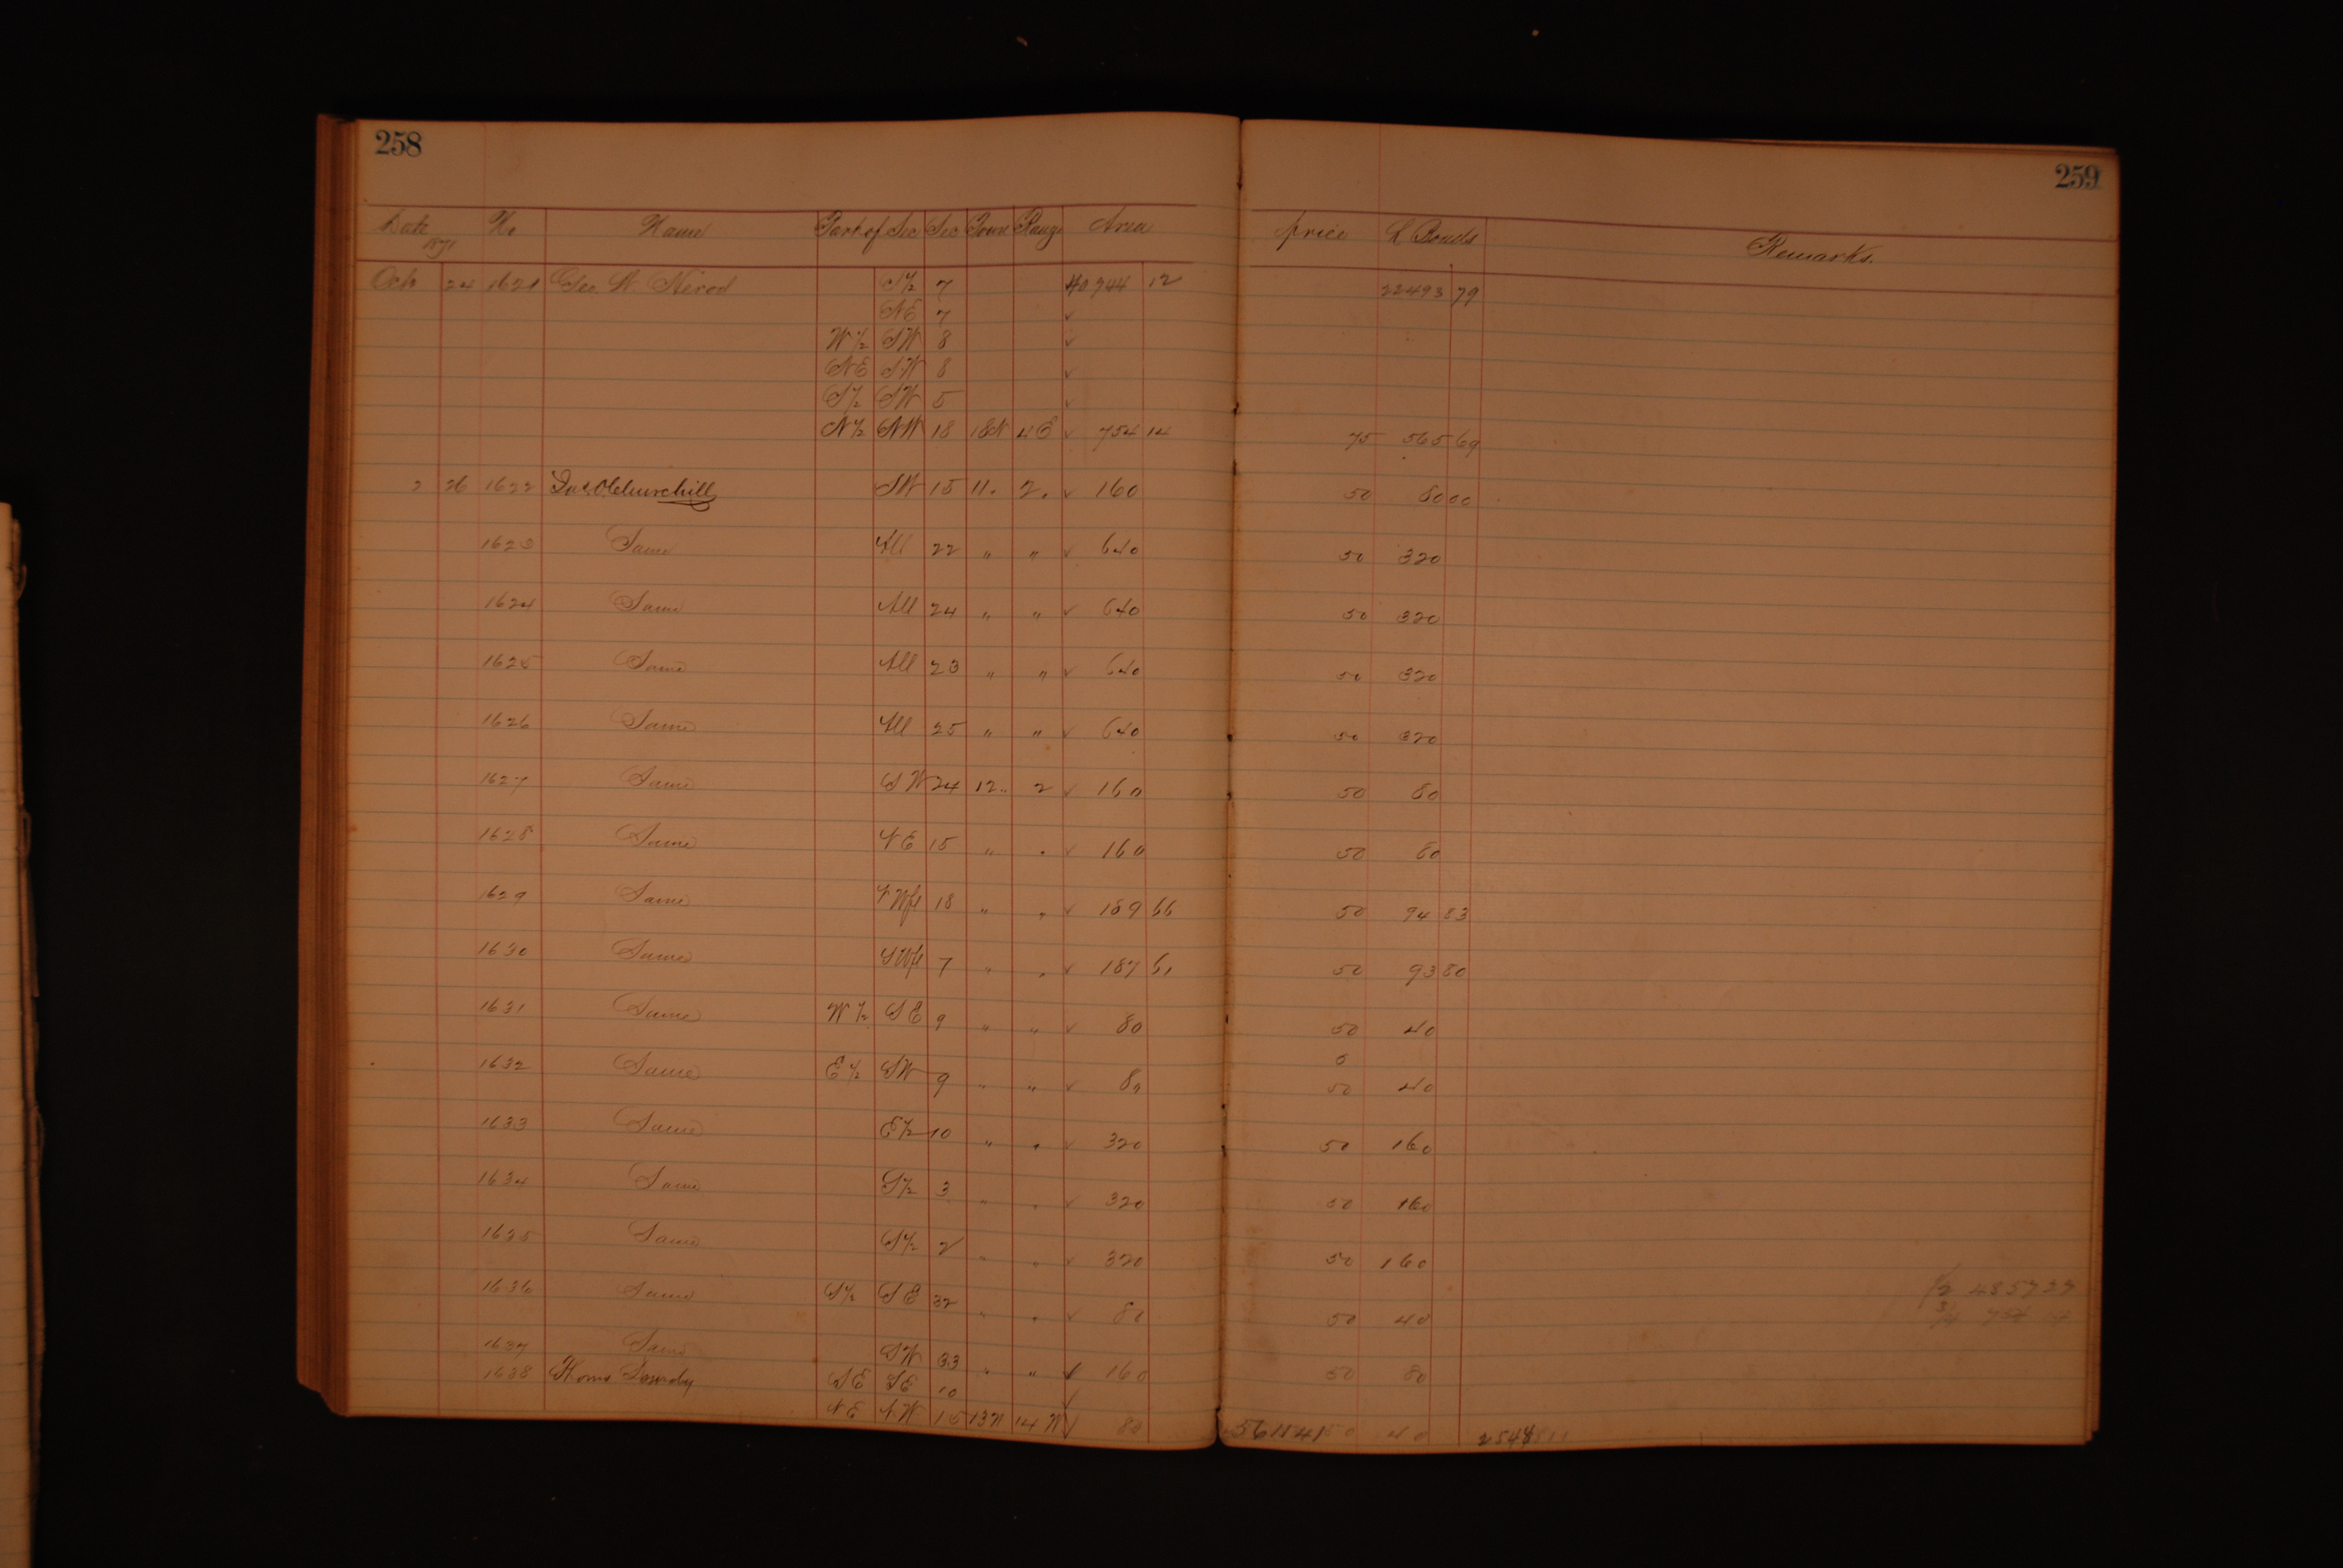 258
259
Date 1871 No Name Part of Sec Sec Town Range Area price L Bonds Remarks.
Oct 24 1621 Geo. W. S½ 7 40944 12 22493 79
NE 7 ✓
W½ SW 8 ✓
NE SW 8 ✓
S½ SW 5 ✓
N½ NW 18 18N 4E ✓ 754 14 75 565 69
26 1622 Jas. O Churchill SW 15 11. 2. ✓ 160 50 80 00
1623 Same All 22 " " ✓ 640 50 320
1624 Same All 24 " " ✓ 640 50 320
1625 Same All 23 " " ✓ 640 50 320
1626 Same All 25 " " ✓ 640 50 320
1627 Same SW 24 12 " 2 ✓ 160 50 80
1628 Same NE 15 " " ✓ 160 50 80
1629 Same NWfl 18 " " ✓ 189 66 50 94 83
1630 Same SWfl 7 " " ✓ 187 61 50 93 80
1631 Same W½ SE 9 " " ✓ 80 50 40
1632 Same E½ SW 9 " " ✓ 80 50 40
1633 Same E½ 10 " " ✓ 320 50 160
1634 Same S½ 3 " " ✓ 320 50 160
1635 Same S½ 2 " " ✓ 320 50 160
1636 Same S½ SE 32 " " ✓ 80 50 40
½ 4857 27
¾ 754 14
1637 Same SW 33 " " ✓ 160 50 80
1638 Thoms SE SE 10 ✓
NE NW 15 13N 14W ✓ 80 5611 41 50 40 2548